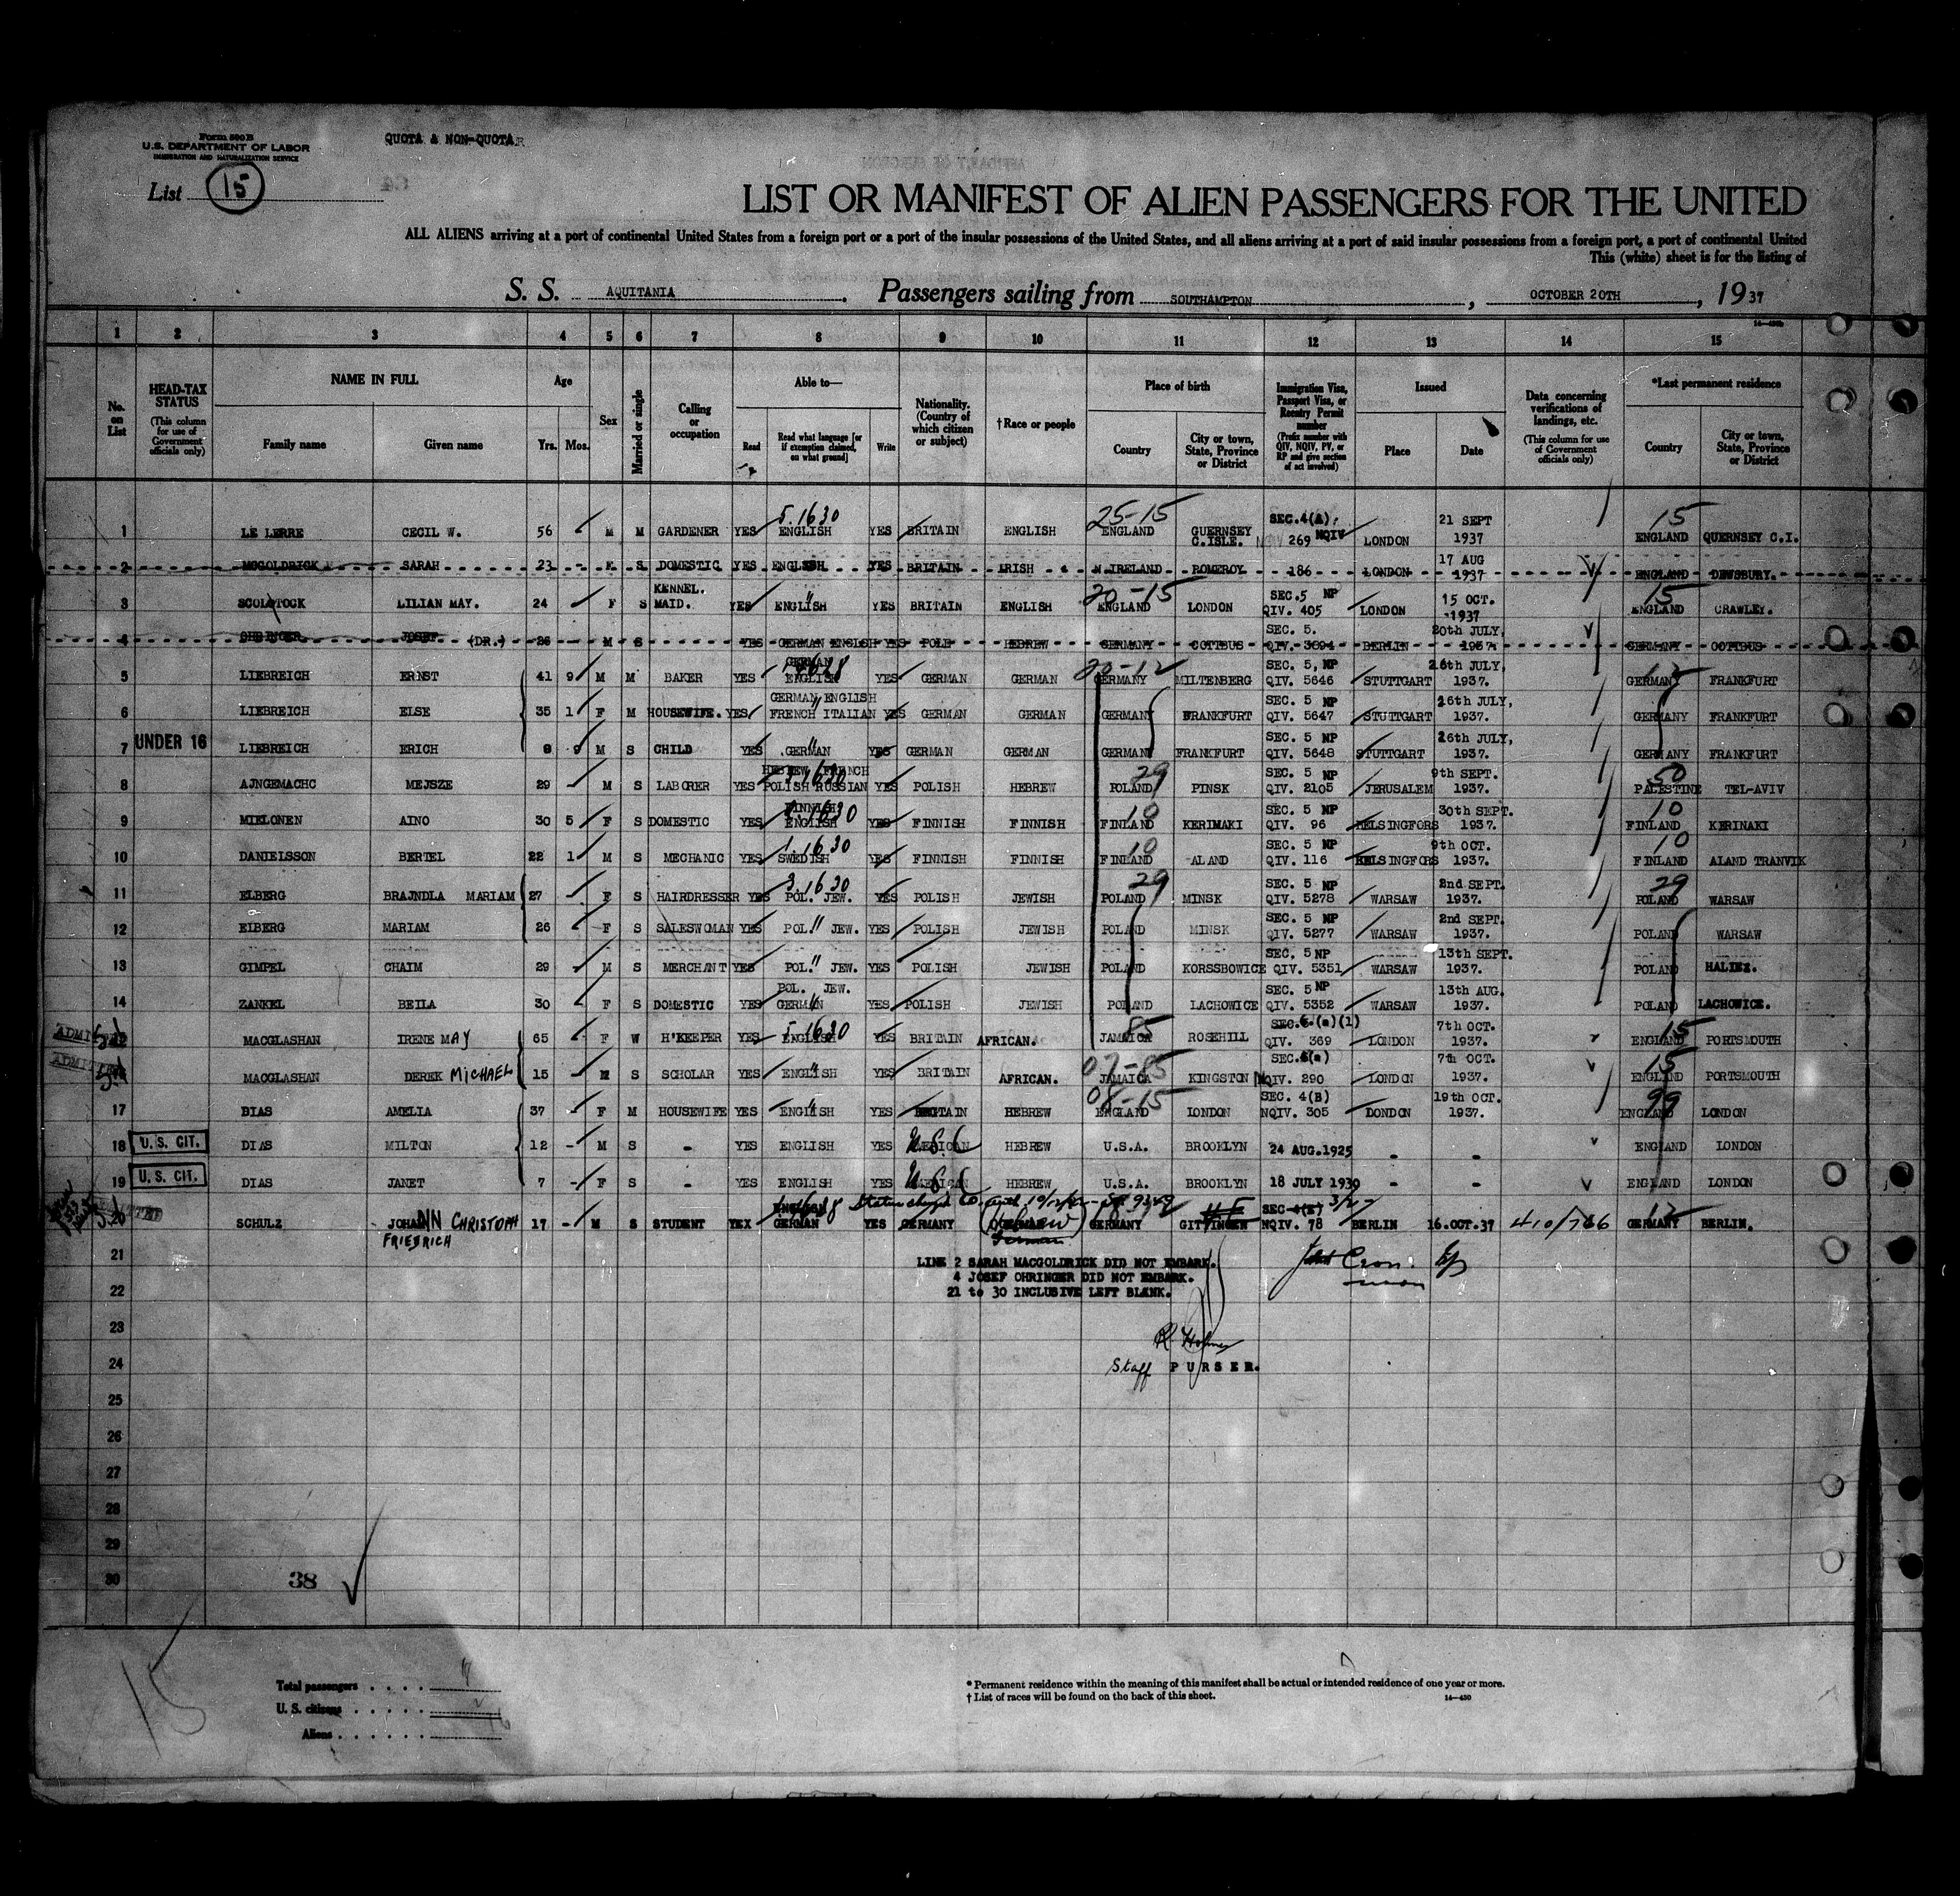 Form 500 B
U.S. DEPARTMENT OF LABOR
IMMIGRATION AND NATURALIZATION SERVICE
QUOTA & NON-QUOTA
List 15
LIST OR MANIFEST OF ALIEN PASSENGERS FOR THE UNITED
ALL ALIENS arriving at a port of continental United States from a foreign port or a port of the insular possessions of the United States, and all aliens arriving at a port of said insular possessions from a foreign port, a port of continental United
This (white) sheet is for the listing of
S. S. AQUITANIA. Passengers sailing from SOUTHAMPTON, OCTOBER 20TH, 1937
1 2 3 4 5 6 7 8 9 10 11 12 13 14 15
No. on List
HEAD-TAX STATUS (This column for use of Government officials only)
NAME IN FULL Family name Given name
Age Yrs. Mos.
Sex
Married or single
Calling or occupation
Able to— Read Read what language [or if exemption claimed, on what ground] Write
Nationality. (Country of which citizen or subject)
†Race or people
Place of birth Country City or town, State, Province or District
Immigration Visa, Passport Visa, or Reentry Permit number (Prefix number with QIV, NQIV, PV, or RP and give section of act involved)
Issued Place Date
Data concerning verifications of landings, etc. (This column for use of Government officials only)
*Last permanent residence Country City or town, State, Province or District
1 LE LERRE CECIL W. 56 M M GARDENER YES 5.1630 ENGLISH YES BRITAIN ENGLISH 25-15 ENGLAND GUERNSEY C.ISLE. SEC.4(A). 269 NQIV LONDON 21 SEPT 1937 15 ENGLAND QUERNSEY C.I.
2 MCGOLDRICK SARAH 23 - F S DOMESTIC YES ENGLISH YES BRITAIN IRISH N.IRELAND POMEROY 186 LONDON 17 AUG 1937 ENGLAND DEWSBURY.
3 SCOLSTOCK LILIAN MAY. 24 F S KENNEL. MAID. YES ENGLISH YES BRITAIN ENGLISH 20-15 ENGLAND LONDON SEC.5 NP QIV. 405 LONDON 15 OCT. 1937 15 ENGLAND CRAWLEY.
4 OHRINGER JOSEF (DR.) 26 M S YES GERMAN ENGLSH YES POLE HEBREW GERMANY COTTBUS SEC. 5. QIV. 3694 BERLIN 20th JULY, 1937. GERMANY COTTBUS
5 LIEBREICH ERNST 41 9 M M BAKER YES GERMAN ENGLISH YES GERMAN GERMAN 20-12 GERMANY MILTENBERG SEC. 5, NP QIV. 5646 STUTTGART 26th JULY, 1937. 12 GERMANY FRANKFURT
6 LIEBREICH ELSE 35 1 F M HOUSEWIFE. YES GERMAN ENGLISH FRENCH ITALIAN YES GERMAN GERMAN GERMANY FRANKFURT SEC. 5 NP QIV. 5647 STUTTGART 26th JULY, 1937. GERMANY FRANKFURT
7 UNDER 16 LIEBREICH ERICH 8 9 M S CHILD YES GERMAN YES GERMAN GERMAN GERMANY FRANKFURT SEC. 5 NP QIV. 5648 STUTTGART 26th JULY, 1937. GERMANY FRANKFURT
8 AJNGEMACHC MEJSZE 29 - M S LABORER YES HEBREW FRENCH POLISH RUSSIAN YES POLISH HEBREW 29 POLAND PINSK SEC. 5 NP QIV. 2105 JERUSALEM 9th SEPT. 1937. 50 PALESTINE TEL-AVIV
9 MIELONEN AINO 30 5 F S DOMESTIC YES FINNISH ENGLISH YES FINNISH FINNISH 10 FINLAND KERIMAKI SEC. 5 NP QIV. 96 HELSINGFORS 30th SEPT. 1937. 10 FINLAND KERINAKI
10 DANIELSSON BERTEL 22 1 M S MECHANIC YES 1.1630 SWEDISH YES FINNISH FINNISH 10 FINLAND ALAND SEC. 5 NP QIV. 116 HELSINGFORS 9th OCT. 1937. 10 FINLAND ALAND TRANVIK
11 ELBERG BRAJNDLA MARIAM 27 - F S HAIRDRESSER YES 3.1630 POL. JEW. YES POLISH JEWISH 29 POLAND MINSK SEC. 5 NP QIV. 5278 WARSAW 2nd SEPT. 1937. 29 POLAND WARSAW
12 EIBERG MARIAM 26 F S SALESWOMAN YES POL. " JEW. YES POLISH JEWISH POLAND MINSK SEC. 5 NP QIV. 5277 WARSAW 2nd SEPT. 1937. POLAND WARSAW
13 GIMPEL CHAIM 29 - M S MERCHANT YES POL. " JEW. YES POLISH JEWISH POLAND KORSSBOWICE SEC. 5 NP QIV. 5351 WARSAW 13th SEPT. 1937. POLAND HALINZ.
14 ZANKEL BEILA 30 F S DOMESTIC YES POL. JEW. GERMAN YES POLISH JEWISH POLAND LACHOWICE SEC. 5 NP QIV. 5352 WARSAW 13th AUG. 1937. POLAND LACHOWICE.
ADMITTED MACGLASHAN IRENE MAY 65 F W H'KEEPER YES 5.1630 ENGLISH YES BRITAIN AFRICAN. 85 JAMAICA ROSEHILL SEC.6.(a)(1) QIV. 369 LONDON 7th OCT. 1937. 15 ENGLAND PORTSMOUTH
ADMITTED MACGLASHAN DEREK MICHAEL 15 M S SCHOLAR YES ENGLISH YES BRITAIN AFRICAN. 07-85 JAMAICA KINGSTON SEC.4(a) NQIV. 290 LONDON 7th OCT. 1937. 15 ENGLAND PORTSMOUTH
17 BIAS AMELIA 37 - F M HOUSEWIFE YES ENGLISH YES BRITAIN HEBREW 08-15 ENGLAND LONDON SEC. 4(B) NQIV. 305 LONDON 19th OCT. 1937. 99 ENGLAND LONDON
18 U. S. CIT. DIAS MILTON 12 - M S - YES ENGLISH YES AMERICAN HEBREW U.S.A. BROOKLYN 24 AUG.1925 - - ENGLAND LONDON
19 U. S. CIT. DIAS JANET 7 - F S - YES ENGLISH YES AMERICAN HEBREW U.S.A. BROOKLYN 18 JULY 1930 - - ENGLAND LONDON
20 SCHULZ JOHANN CHRISTOPH FRIEDRICH 17 - M S STUDENT YEX ENGLISH GERMAN YES GERMANY (Hebrew) German GERMANY GITTINGEN SEC 4(E) 3/2 NQIV. 78 BERLIN 16.OCT.37 410/766 12 GERMANY BERLIN.
21 LINE 2 SARAH MACGOLDRICK DID NOT EMBARK.
4 JOSEF OHRINGER DID NOT EMBARK.
22 21 to 30 INCLUSIVE LEFT BLANK.
23 R Holmes
24 Staff PURSER.
25
26
27
28
29
30 38
15
Total passengers
U.S. citizens
Aliens
* Permanent residence within the meaning of this manifest shall be actual or intended residence of one year or more.
† List of races will be found on the back of this sheet. 14—430